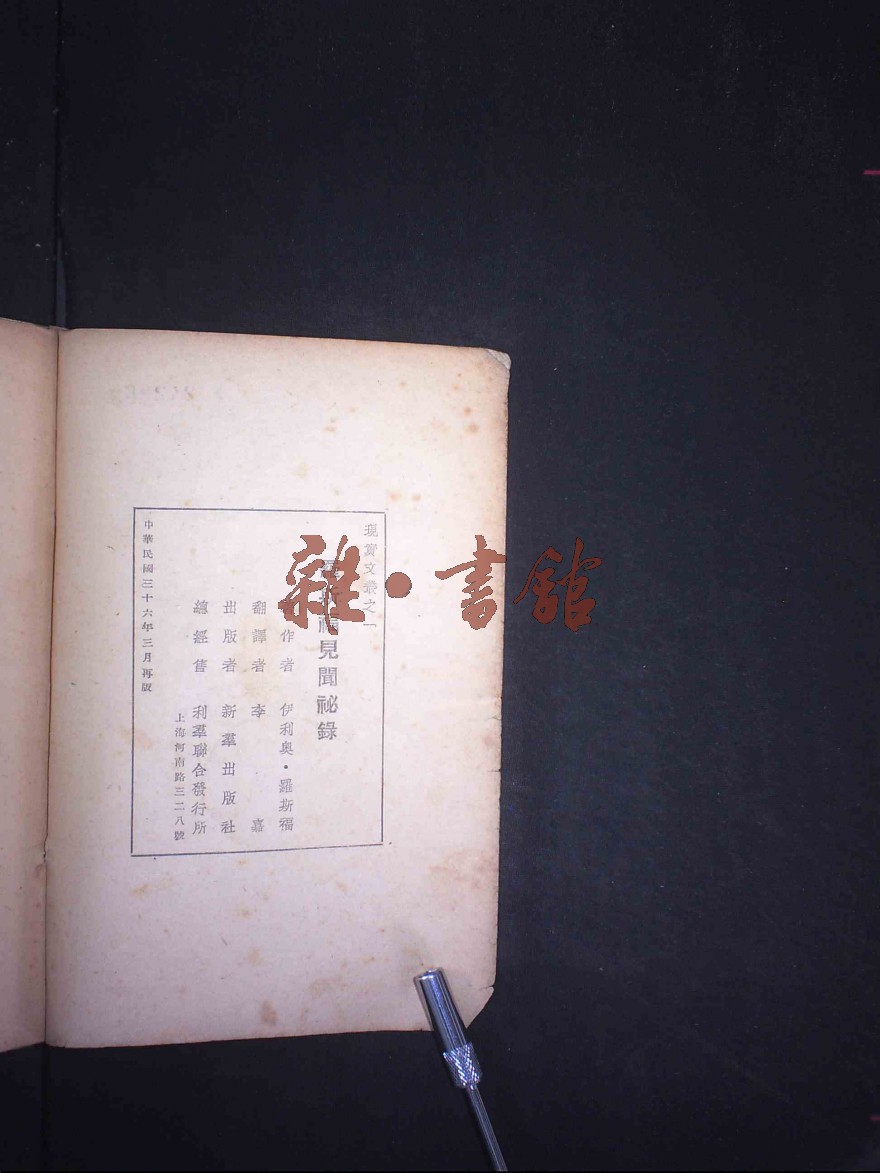 現實文叢之一
羅斯福見聞祕錄
著作者 伊利奧·羅斯福
翻譯者 李嘉
出版者 新羣出版社
總經售 利羣聯合發行所
上海河南路三二八號
中華民國三十六年三月再版
雜·書館